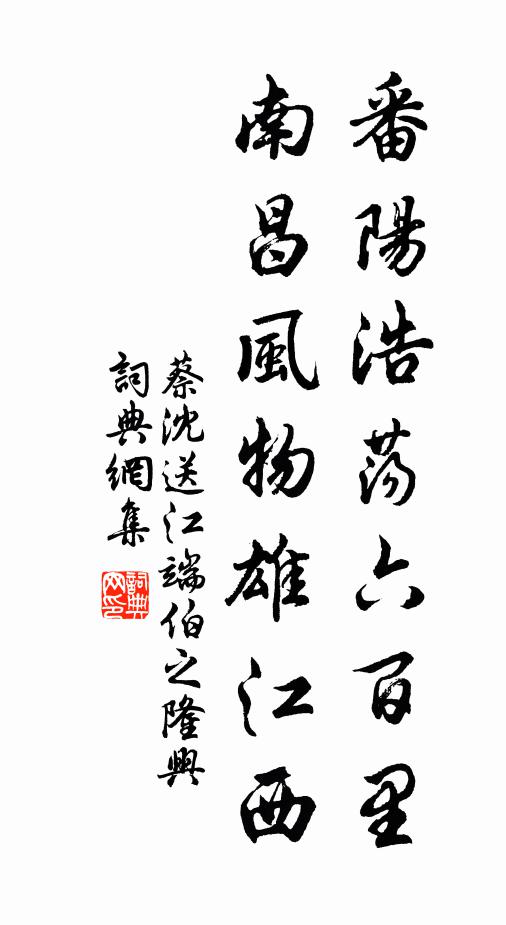 番陽浩蕩六百里
南昌風物雄江西
蔡沈送江端伯之隆興
詞典網集
詞典网印